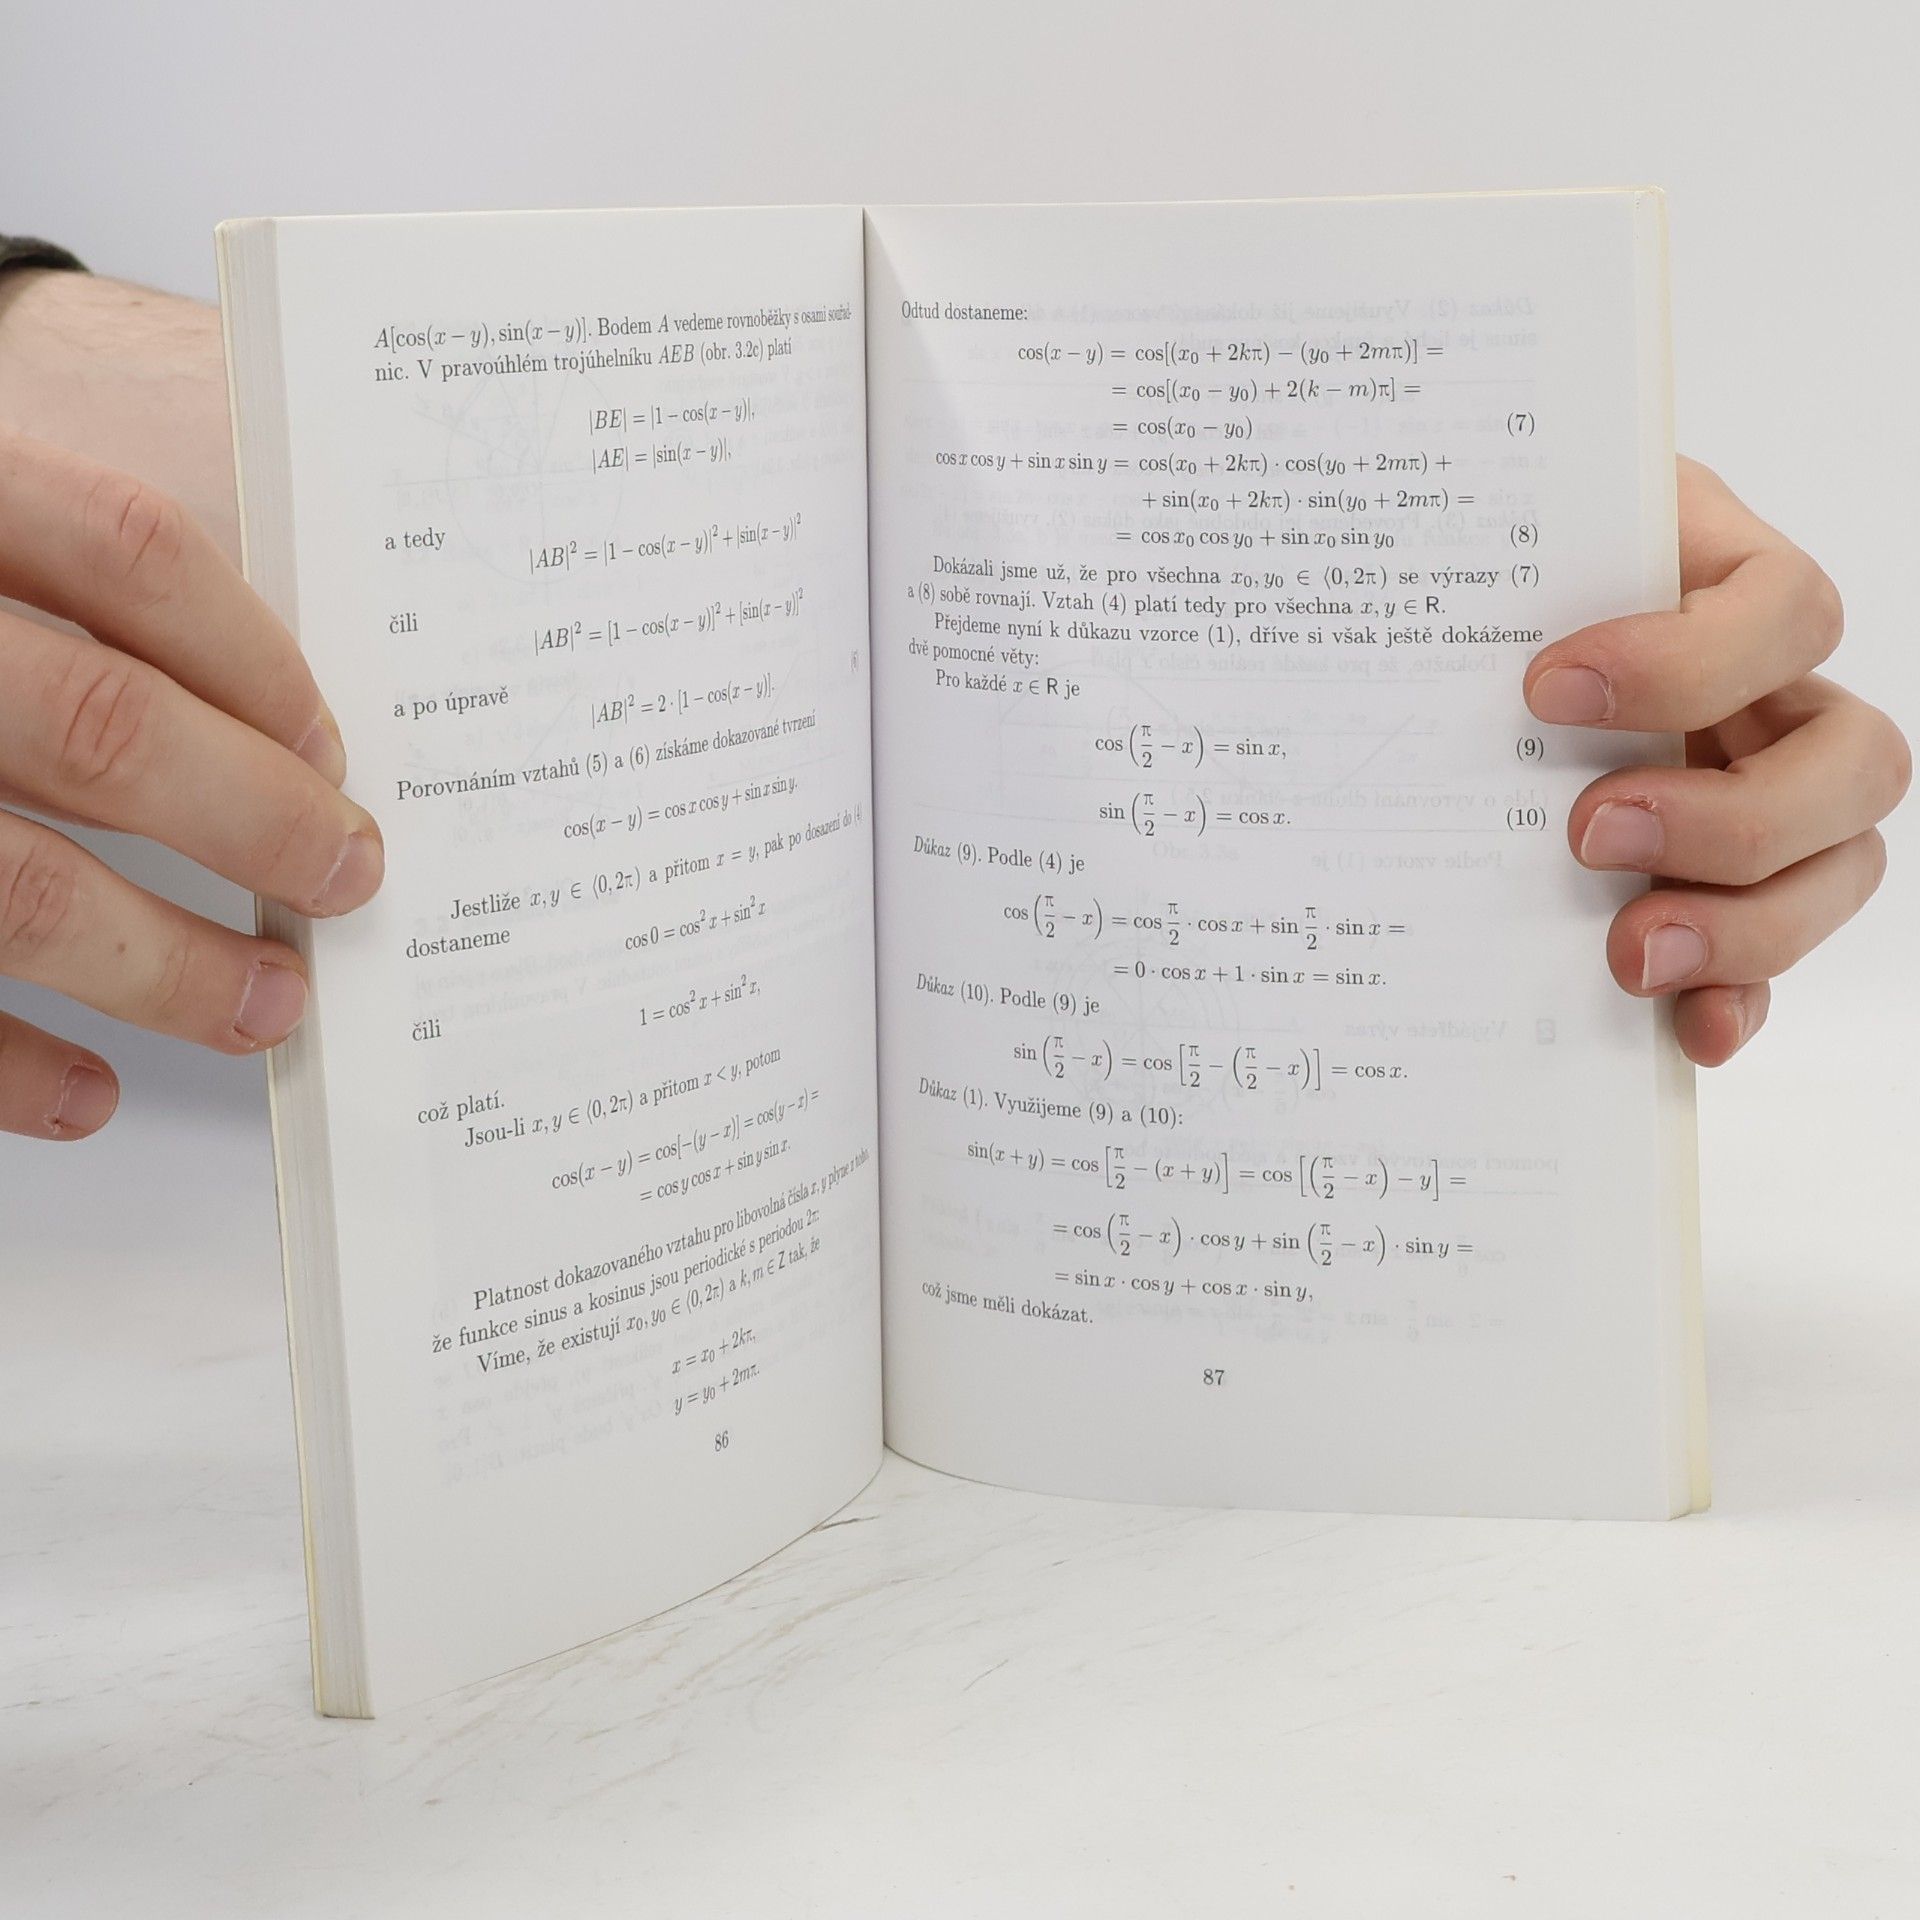 A[cos(x − y), sin(x − y)]. Bodem A vedeme rovnoběžky s osami souřad-
nic. V pravoúhlém trojúhelníku AEB (obr. 3.2c) platí
|BE| = |1 − cos(x − y)|,
|AE| = |sin(x − y)|,
a tedy
|AB|² = |1 − cos(x − y)|² + |sin(x − y)|²
čili
|AB|² = [1 − cos(x − y)]² + [sin(x − y)]²
a po úpravě
|AB|² = 2 · [1 − cos(x − y)]. (6)
Porovnáním vztahů (5) a (6) získáme dokazované tvrzení
cos(x − y) = cos x cos y + sin x sin y.
Jestliže x, y ∈ ⟨0, 2π) a přitom x = y, pak po dosazení do (4)
dostaneme
cos 0 = cos² x + sin² x
čili
1 = cos² x + sin² x,
což platí.
Jsou-li x, y ∈ ⟨0, 2π) a přitom x < y, potom
cos(x − y) = cos[−(y − x)] = cos(y − x) =
= cos y cos x + sin y sin x.
Platnost dokazovaného vztahu pro libovolná čísla x, y plyne z toho,
že funkce sinus a kosinus jsou periodické s periodou 2π:
Víme, že existují x₀, y₀ ∈ ⟨0, 2π) a k, m ∈ Z tak, že
x = x₀ + 2kπ,
y = y₀ + 2mπ.
86
Odtud dostaneme:
cos(x − y) = cos[(x₀ + 2kπ) − (y₀ + 2mπ)] =
= cos[(x₀ − y₀) + 2(k − m)π] =
= cos(x₀ − y₀) (7)
cos x cos y + sin x sin y = cos(x₀ + 2kπ) · cos(y₀ + 2mπ) +
+ sin(x₀ + 2kπ) · sin(y₀ + 2mπ) =
= cos x₀ cos y₀ + sin x₀ sin y₀ (8)
Dokázali jsme už, že pro všechna x₀, y₀ ∈ ⟨0, 2π) se výrazy (7)
a (8) sobě rovnají. Vztah (4) platí tedy pro všechna x, y ∈ R.
Přejdeme nyní k důkazu vzorce (1), dříve si však ještě dokážeme
dvě pomocné věty:
Pro každé x ∈ R je
cos (π/2 − x) = sin x, (9)
sin (π/2 − x) = cos x. (10)
Důkaz (9). Podle (4) je
cos (π/2 − x) = cos π/2 · cos x + sin π/2 · sin x =
= 0 · cos x + 1 · sin x = sin x.
Důkaz (10). Podle (9) je
sin (π/2 − x) = cos [π/2 − (π/2 − x)] = cos x.
Důkaz (1). Využijeme (9) a (10):
sin(x + y) = cos [π/2 − (x + y)] = cos [(π/2 − x) − y] =
= cos (π/2 − x) · cos y + sin (π/2 − x) · sin y =
= sin x · cos y + cos x · sin y,
což jsme měli dokázat.
87